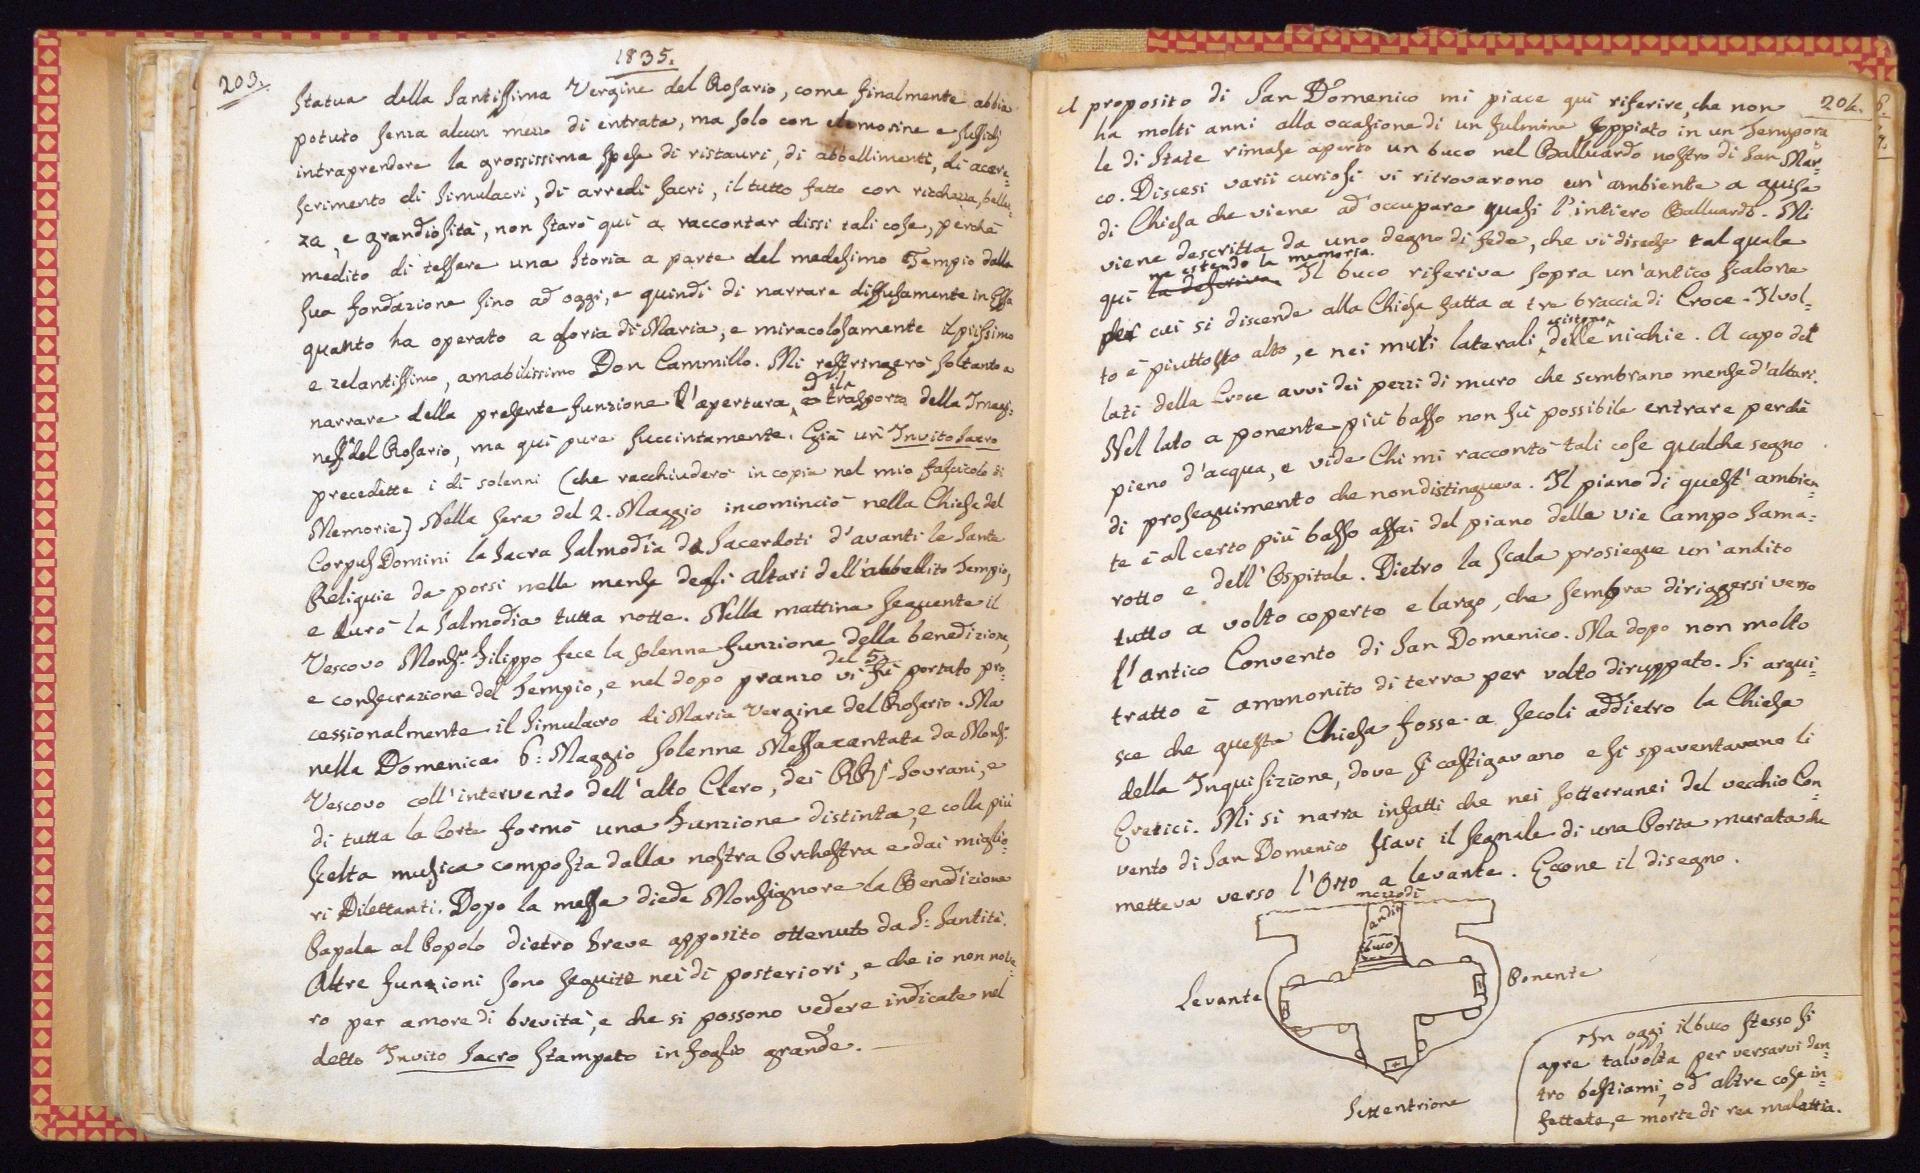 1835.
203.
Statua della Santissima Vergine del Rosario, come finalmente abbia
potuto senza alcun mezzo di entrata, ma solo con elemosine e sussidj
intraprendere la grossissima spesa di ristauri, di abbellimenti, di accre=
scimento di Simulacri, di arredi sacri, il tutto fatto con ricchezza, bellez=
za, e grandiosità, non starò quì a raccontar dissi tali cose, perchè
medito di tessere una Storia a parte del medesimo Tempio dalla
sua fondazione sino ad oggi, e quindi di narrare diffusamente in Essa
quanto ha operato a gloria di Maria, e miracolosamente il piissimo
e zelantissimo, amabilissimo Don Cammillo. Mi restringerò soltanto a
narrare della presente funzione l'apertura, ed il trasporto della
del Rosario, ma quì pure succintamente. Già un Invito Sacro
precedette i dì solenni (che racchiuderò in copia nel mio fascicolo di
Memorie) Nella sera del 2. Maggio incominciò nella Chiesa del
Corpus Domini la Sacra Salmodia da Sacerdoti d'avanti le Sante
Reliquie da porsi nelle mense degli altari dell'abbellito Tempio,
e durò la Salmodia tutta notte. Nella mattina seguente il
Vescovo Monsr. Filippo fece la solenne funzione della benedizione,
e consecrazione del Tempio, e nel dopo pranzo del 5. vi fù portato pro=
cessionalmente il Simulacro di Maria Vergine del Rosario. Ma
nella Domenica 6: Maggio solenne Messa cantata da Monsr.
Vescovo coll'intervento dell'alto Clero, dei RRj Sovrani, e
di tutta la Corte formò una Funzione distinta, e colla più
scelta musica composta dalla nostra Orchestra e dai miglio=
ri Dilettanti. Dopo la messa diede Monsignore la Benedizione
Papale al Popolo dietro Breve apposito ottenuto da S: Santità.
Altre funzioni sono seguite nei dì posteriori, e che io non note=
rò per amore di brevità, e che si possono vedere indicate nel
detto Invito Sacro stampato in foglio grande.
204.
A proposito di San Domenico mi piace quì riferire, che non
ha molti anni alla occasione di un fulmine scoppiato in un Tempora
le di State rimase aperto un buco nel Balluardo nostro di San Mar=
co. Discesi varii curiosi vi ritrovarono un'ambiente a guisa
di Chiesa che viene ad occupare quasi l'intiero Balluardo. Mi
viene descritta da uno degno di fede, che vi discese tal quale
ne estendo la memoria.
quì la descrivo. Il buco riferiva sopra un'antico scalone
per cui si discende alla Chiesa fatta a tre braccia di Croce. Il vol=
to è piuttosto alto, e nei muri laterali esistono delle nicchie. A capo dei
lati della Croce avvi dei pezzi di muro che sembrano mense d'altari.
Nel lato a ponente più basso non fù possibile entrare perchè
pieno d'acqua, e vide Chi mi raccontò tali cose qualche segno
di proseguimento che non distingueva. Il piano di quest'ambien=
te è al certo più basso assai del piano delle vie Campo Sama=
rotto e dell'Ospitale. Dietro la Scala prosiegue un'andito
tutto a volto coperto e largo, che sembra diriggersi verso
l'antico Convento di San Domenico. Ma dopo non molto
tratto è ammonito di terra per volto diruppato. Si argui=
sce che questa Chiesa fosse a secoli addietro la Chiesa
della Inquisizione, dove si castigavano e si spaventavano li
Eretici. Mi si narra infatti che nei sotterranei del vecchio Con=
vento di San Domenico stavi il segnale di una Porta murata che
metteva verso l'Orto a levante. Eccone il disegno.
mezzodì
andito
(buco)
Levante
Ponente
Settentrione
In oggi il buco stesso si
apre talvolta per versarvi den=
tro bestiami, od altre cose in=
fettate, e morte di rea malattia.